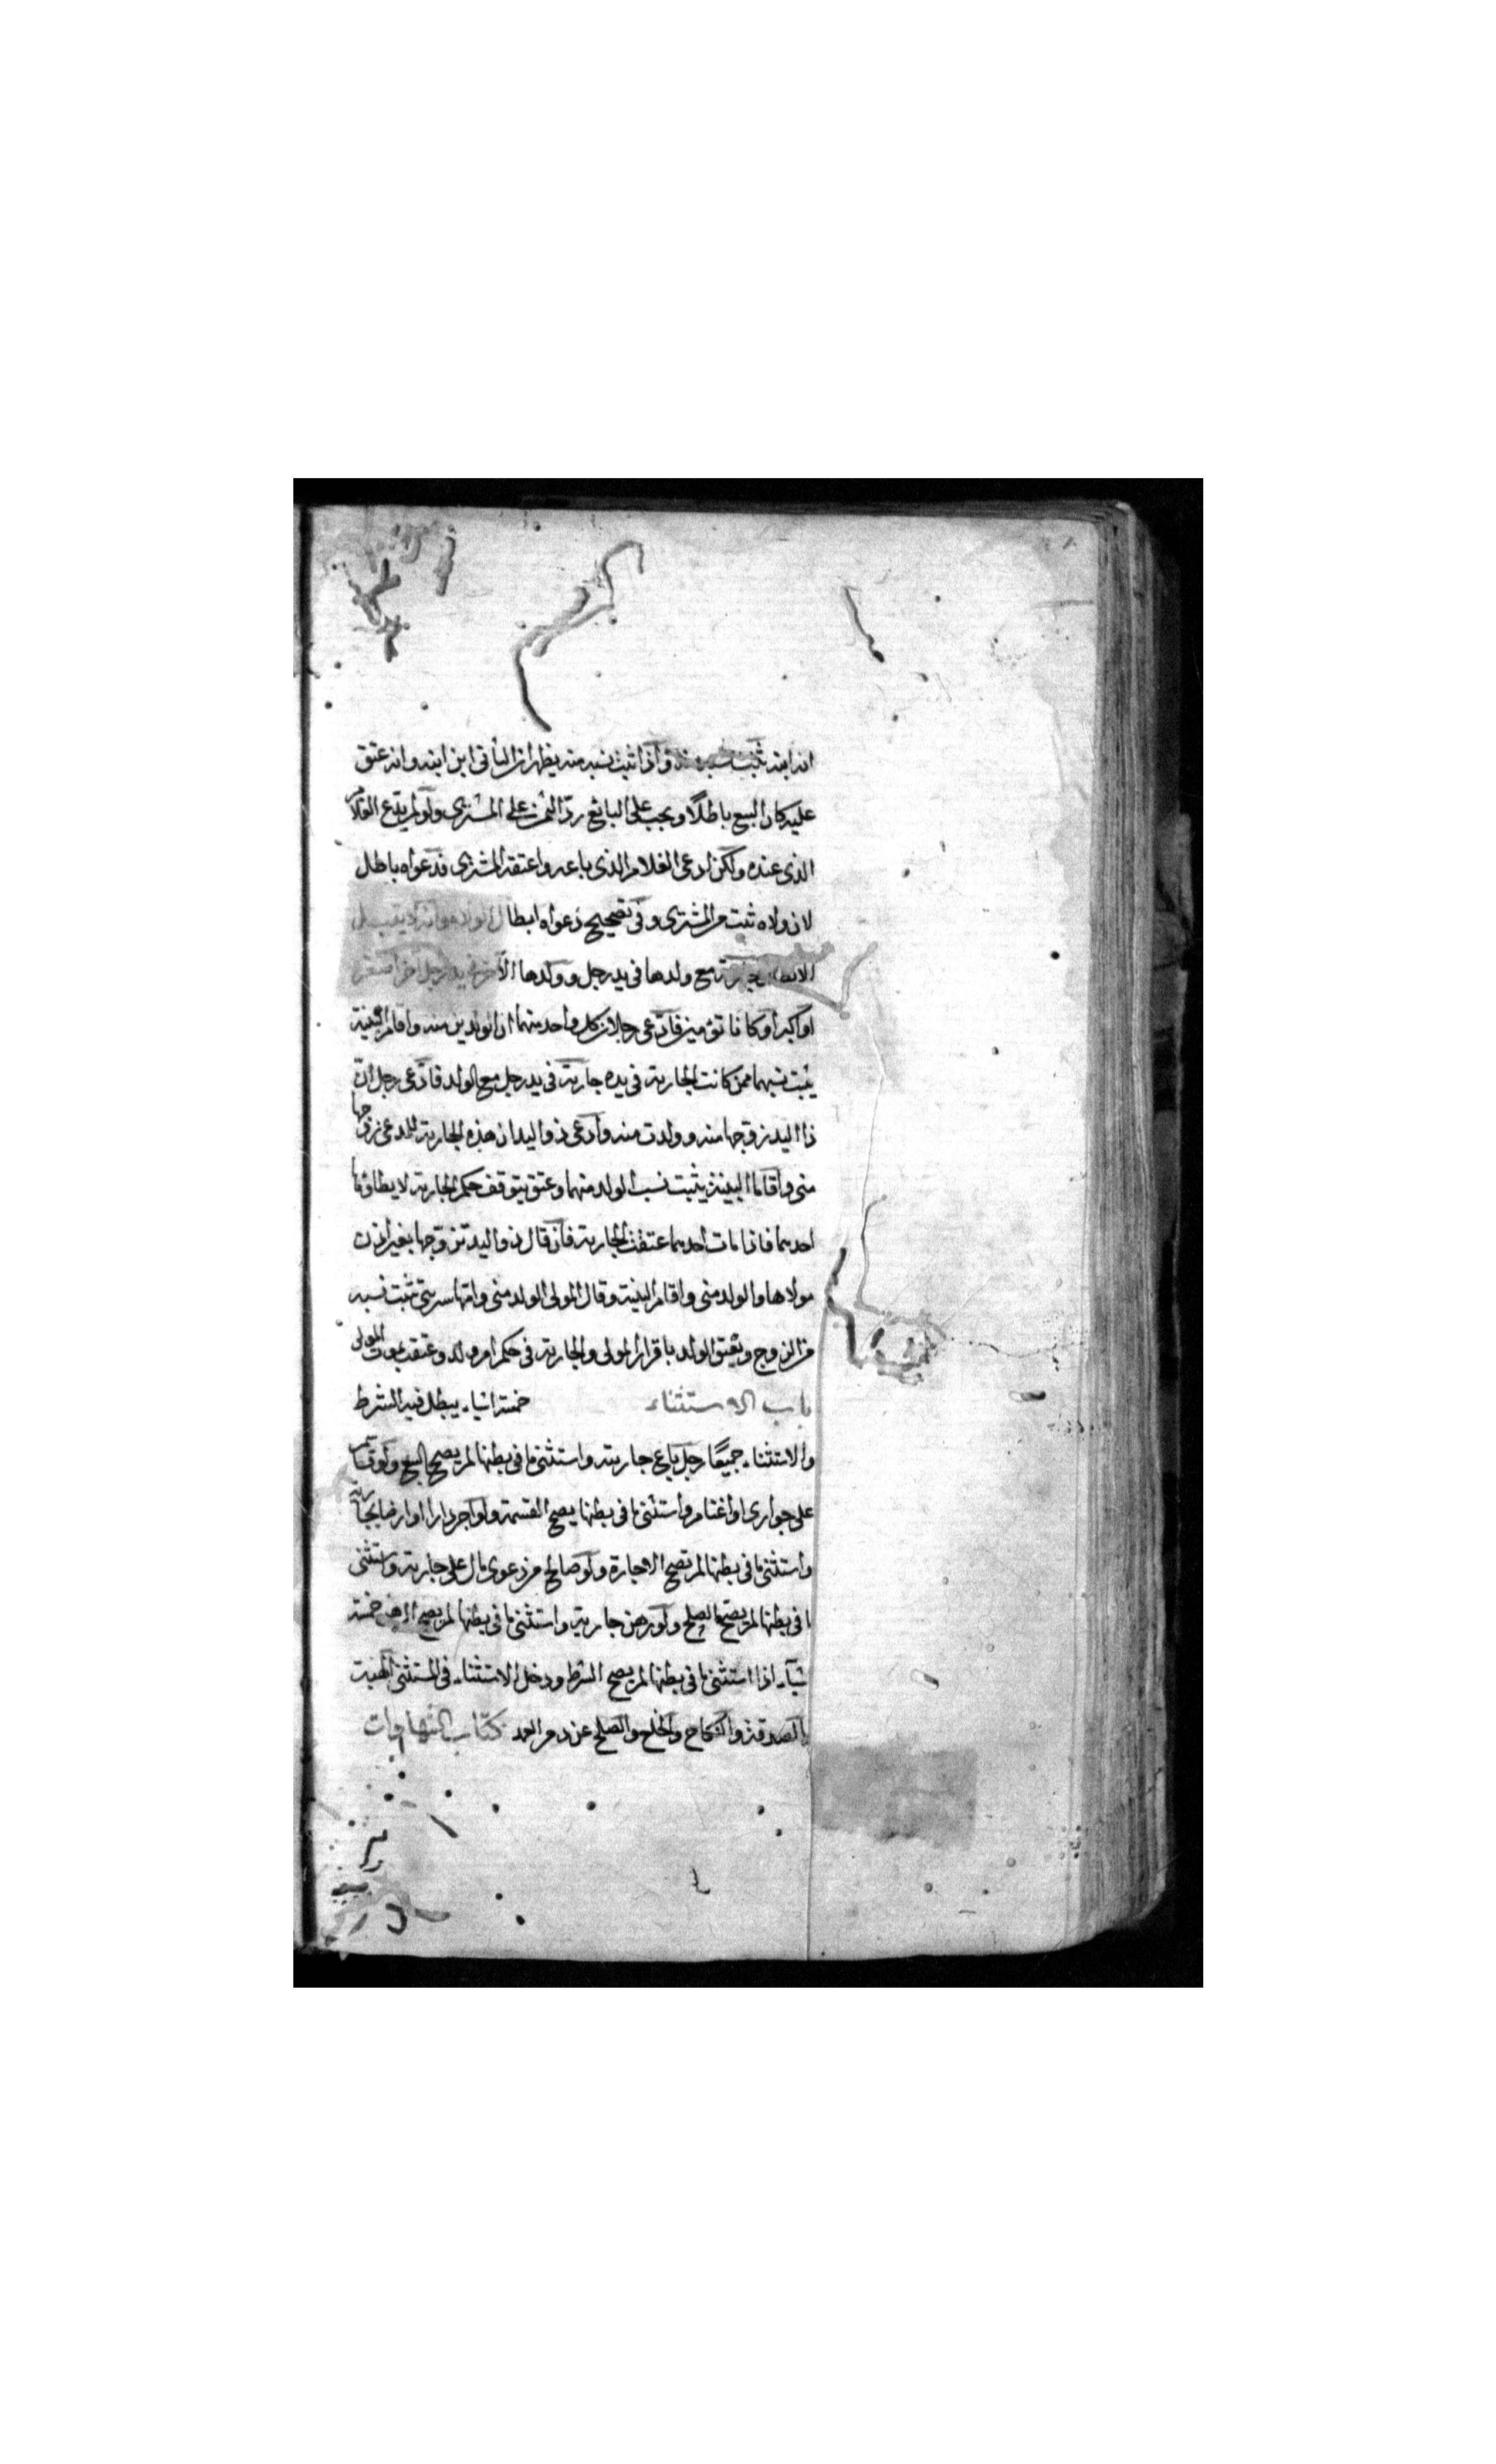 انه ابنه ثبت نسبه منه واذا ثبت نسبه منه يظهر ان الثانى ابن ابنه وانه عتق
عليه كان البيع باطلًا ويجب على البائع ردّ الثمن على المشترى ولو لم يدّع الغلام
الذى عنده ولكن ادعى الغلام الذى باعه واعتقه المشترى فدعواه باطل
لان ولاه ثبت من المشترى وفى تصحيح دعواه ابطال الولاء وانه لا يقبل
الابطال جارية مع ولدها فى يد رجل وولدها الآخر فى يد رجل اخر اصغر
او اكبر او كانا توءمين فادّعى رجلان كل واحد منهما ان الولدين منه واقام البينة
يثبت نسبهما ممن كانت الجارية فى يده جارية فى يد رجل مع الولد فادّعى رجل انّ
ذا اليد زوّجها منه وولدت منه وادّعى ذو اليد ان هذه الجارية للمدعى زوّجها
منى واقاما البينة يثبت نسب الولد منهما وعتق يتوقف حكم الجارية لا يطاؤها
احدهما فاذا مات احدهما عتقت الجارية فان قال ذو اليد تزوّجها بغير اذن
مولاها والولد منى واقام البينة وقال المولى الولد منى وامّها سريتى ثبت نسبه
من الزوج ويعتق الولد باقرار المولى والجارية فى حكم ام ولد وعتقت بموت المولى
باب الاستثناء خمسة اشياء يبطل فيه الشرط
والاستثناء جميعًا رجل باع جارية واستثنى ما فى بطنها لم يصح البيع ولو قاسم
على جوارى او اغنام واستثنى ما فى بطنها يصح القسمة ولو آجر دارا او ارضا بجارية
واستثنى ما فى بطنها لم تصح الاجارة ولو صالح من دعوى مال على جارية واستثنى
ما فى بطنها لم يصح الصلح ولو رهن جارية واستثنى ما فى بطنها لم يصح الرهن خمسة
اشياء اذا استثنى ما فى بطنها لم يصح الشرط ودخل الاستثناء فى المستثنى الهبة
والصدقة والنكاح والخلع والصلح عن دم العمد كتاب الشهادات